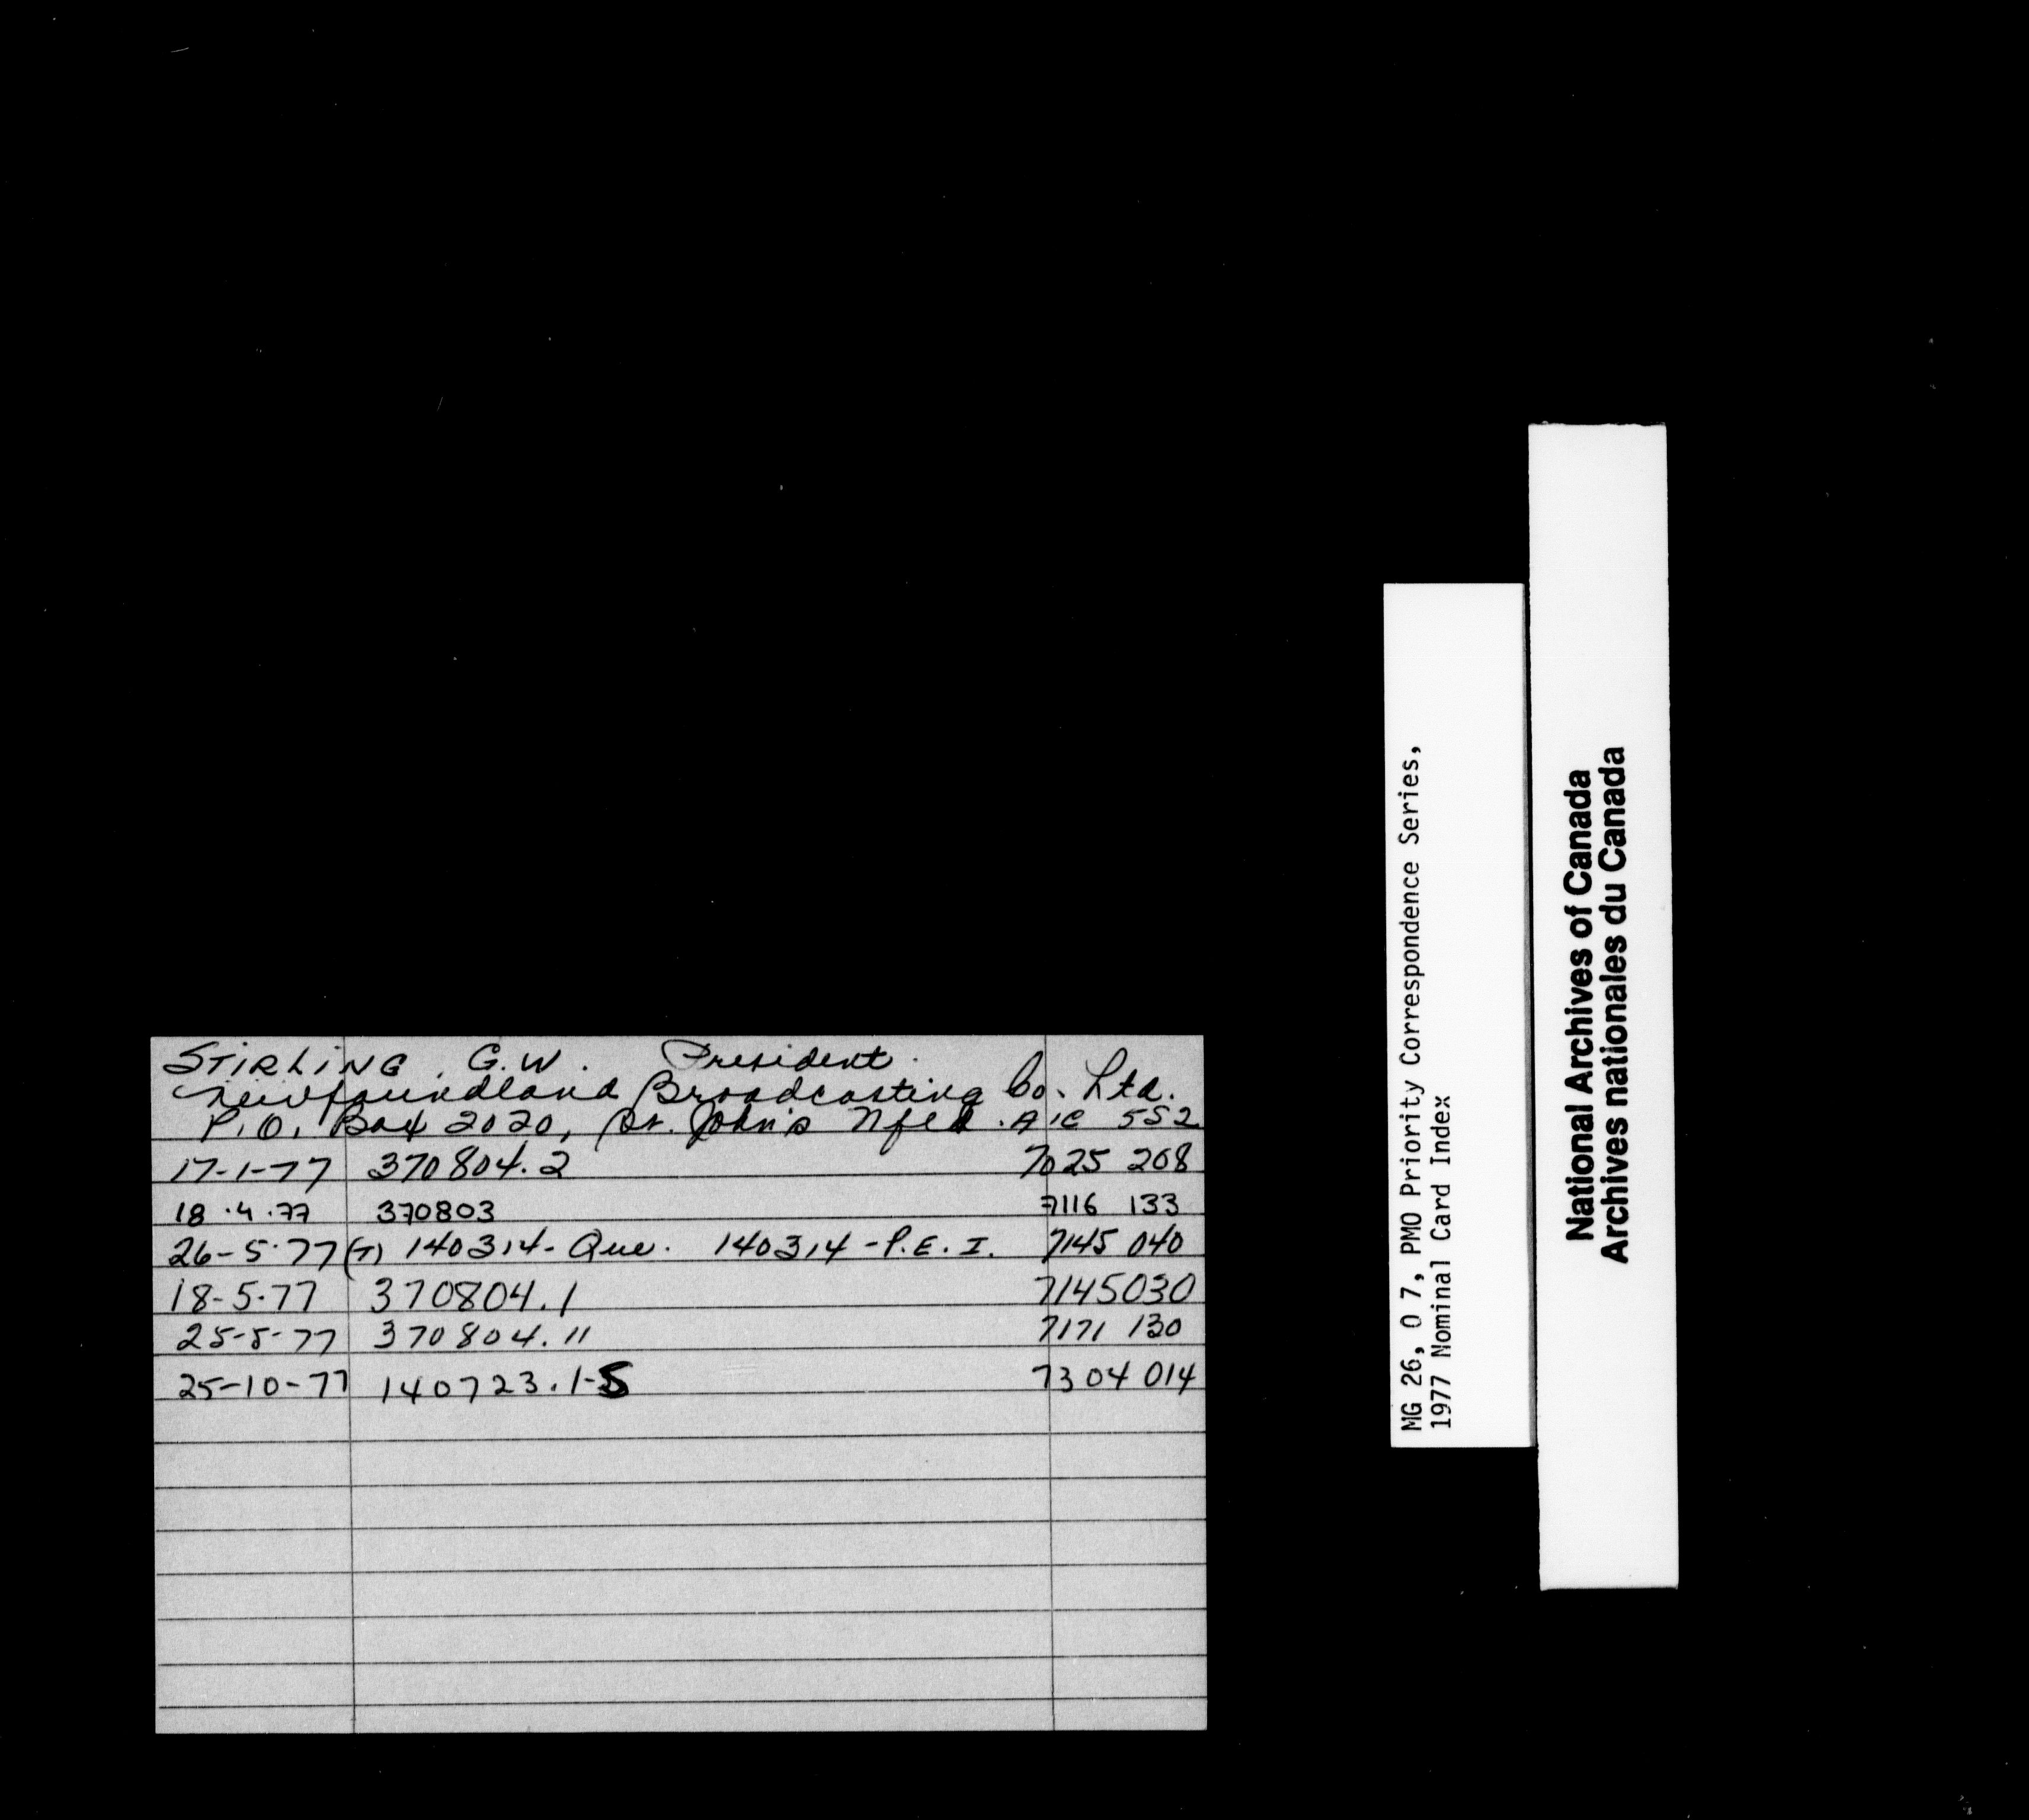 STIRLING, G.W. President.
Newfoundland Broadcasting Co. Ltd.
P.O. Box 2020, St. John's Nfld. A1C 5S2
17-1-77 370804.2 7025 208
18.4.77 370803 7116 133
26-5-77 (T) 140314-Que. 140314-P.E.I. 7145 040
18-5-77 370804.1 7145030
25-5-77 370804.11 7171 130
25-10-77 140723.1-5 7304 014
MG 26, O 7, PMO Priority Correspondence Series,
1977 Nominal Card Index
National Archives of Canada
Archives nationales du Canada